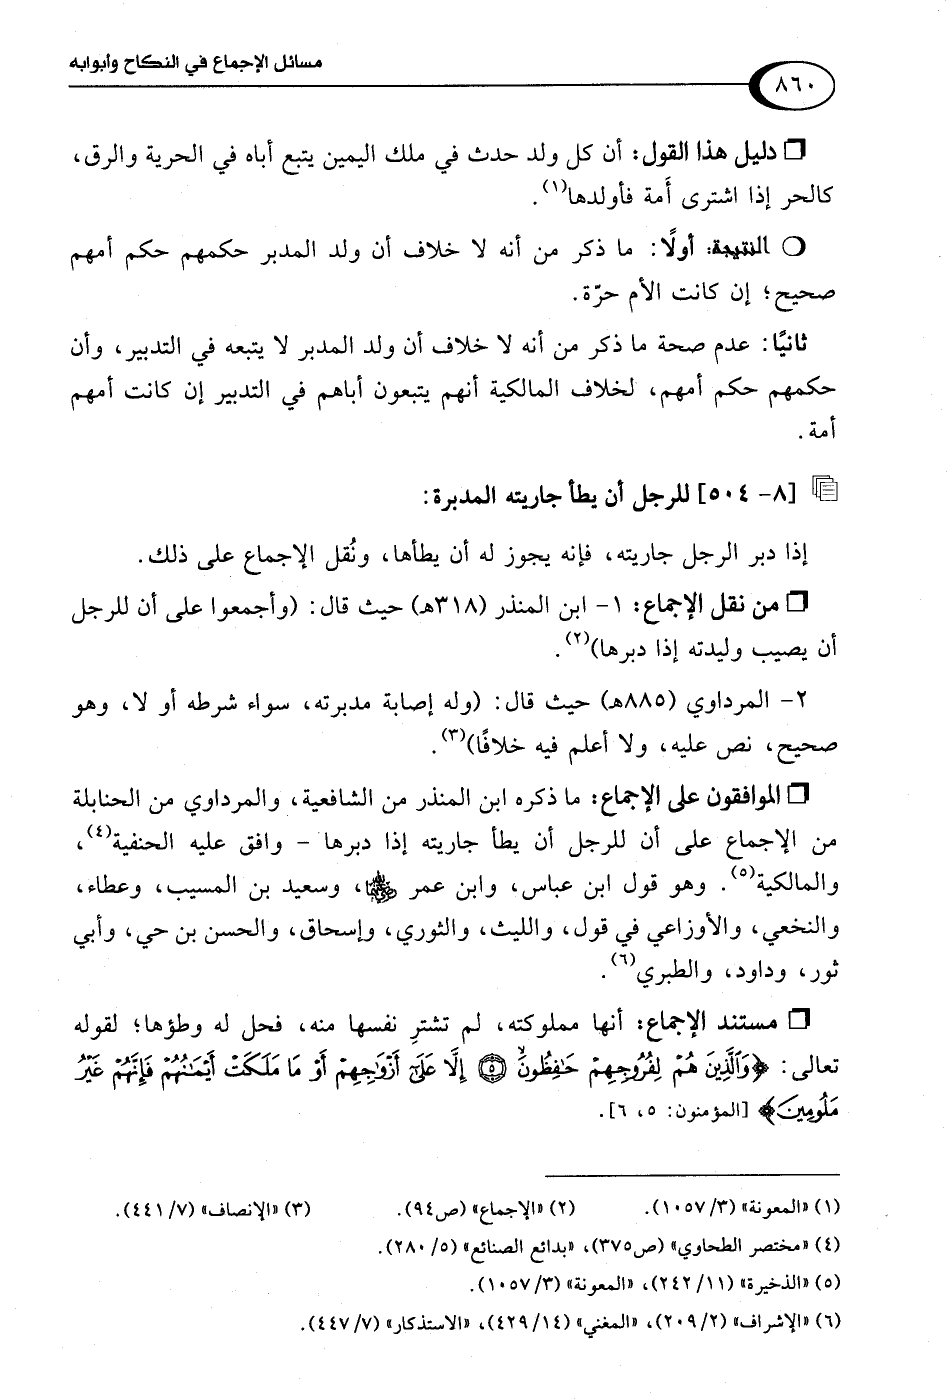 مسائل الإجماع في النكاح وأبوابه
٨٦٠
❒ دليل هذا القول: أن كل ولد حدث في ملك اليمين يتبع أباه في الحرية والرق،
كالحر إذا اشترى أَمة فأولدها(١).
❍ النتيجة: أولًا: ما ذكر من أنه لا خلاف أن ولد المدبر حكمهم حكم أمهم
صحيح؛ إن كانت الأم حرّة.
ثانيًا: عدم صحة ما ذكر من أنه لا خلاف أن ولد المدبر لا يتبعه في التدبير، وأن
حكمهم حكم أمهم، لخلاف المالكية أنهم يتبعون أباهم في التدبير إن كانت أمهم
أمة.
[٨- ٥٠٤] للرجل أن يطأ جاريته المدبرة:
إذا دبر الرجل جاريته، فإنه يجوز له أن يطأها، ونُقل الإجماع على ذلك.
❒ من نقل الإجماع: ١- ابن المنذر (٣١٨هـ) حيث قال: (وأجمعوا على أن للرجل
أن يصيب وليدته إذا دبرها)(٢).
٢- المرداوي (٨٨٥هـ) حيث قال: (وله إصابة مدبرته، سواء شرطه أو لا، وهو
صحيح، نص عليه، ولا أعلم فيه خلافًا)(٣).
❒ الموافقون على الإجماع: ما ذكره ابن المنذر من الشافعية، والمرداوي من الحنابلة
من الإجماع على أن للرجل أن يطأ جاريته إذا دبرها - وافق عليه الحنفية(٤)،
والمالكية(٥). وهو قول ابن عباس، وابن عمر ﵃، وسعيد بن المسيب، وعطاء،
والنخعي، والأوزاعي في قول، والليث، والثوري، وإسحاق، والحسن بن حي، وأبي
ثور، وداود، والطبري(٦).
❒ مستند الإجماع: أنها مملوكته، لم تشترِ نفسها منه، فحل له وطؤها؛ لقوله
تعالى: ﴿وَٱلَّذِينَ هُمۡ لِفُرُوجِهِمۡ حَٰفِظُونَ ۝٥ إِلَّا عَلَىٰٓ أَزۡوَٰجِهِمۡ أَوۡ مَا مَلَكَتۡ أَيۡمَٰنُهُمۡ فَإِنَّهُمۡ غَيۡرُ
مَلُومِينَ﴾ [المؤمنون: ٥، ٦].
(١) «المعونة» (٣/ ١٠٥٧). (٢) «الإجماع» (ص٩٤). (٣) «الإنصاف» (٧/ ٤٤١).
(٤) «مختصر الطحاوي» (ص٣٧٥)، «بدائع الصنائع» (٥/ ٢٨٠).
(٥) «الذخيرة» (١١/ ٢٤٢)، «المعونة» (٣/ ١٠٥٧).
(٦) «الإشراف» (٢/ ٢٠٩)، «المغني» (١٤/ ٤٢٩)، «الاستذكار» (٧/ ٤٤٧).